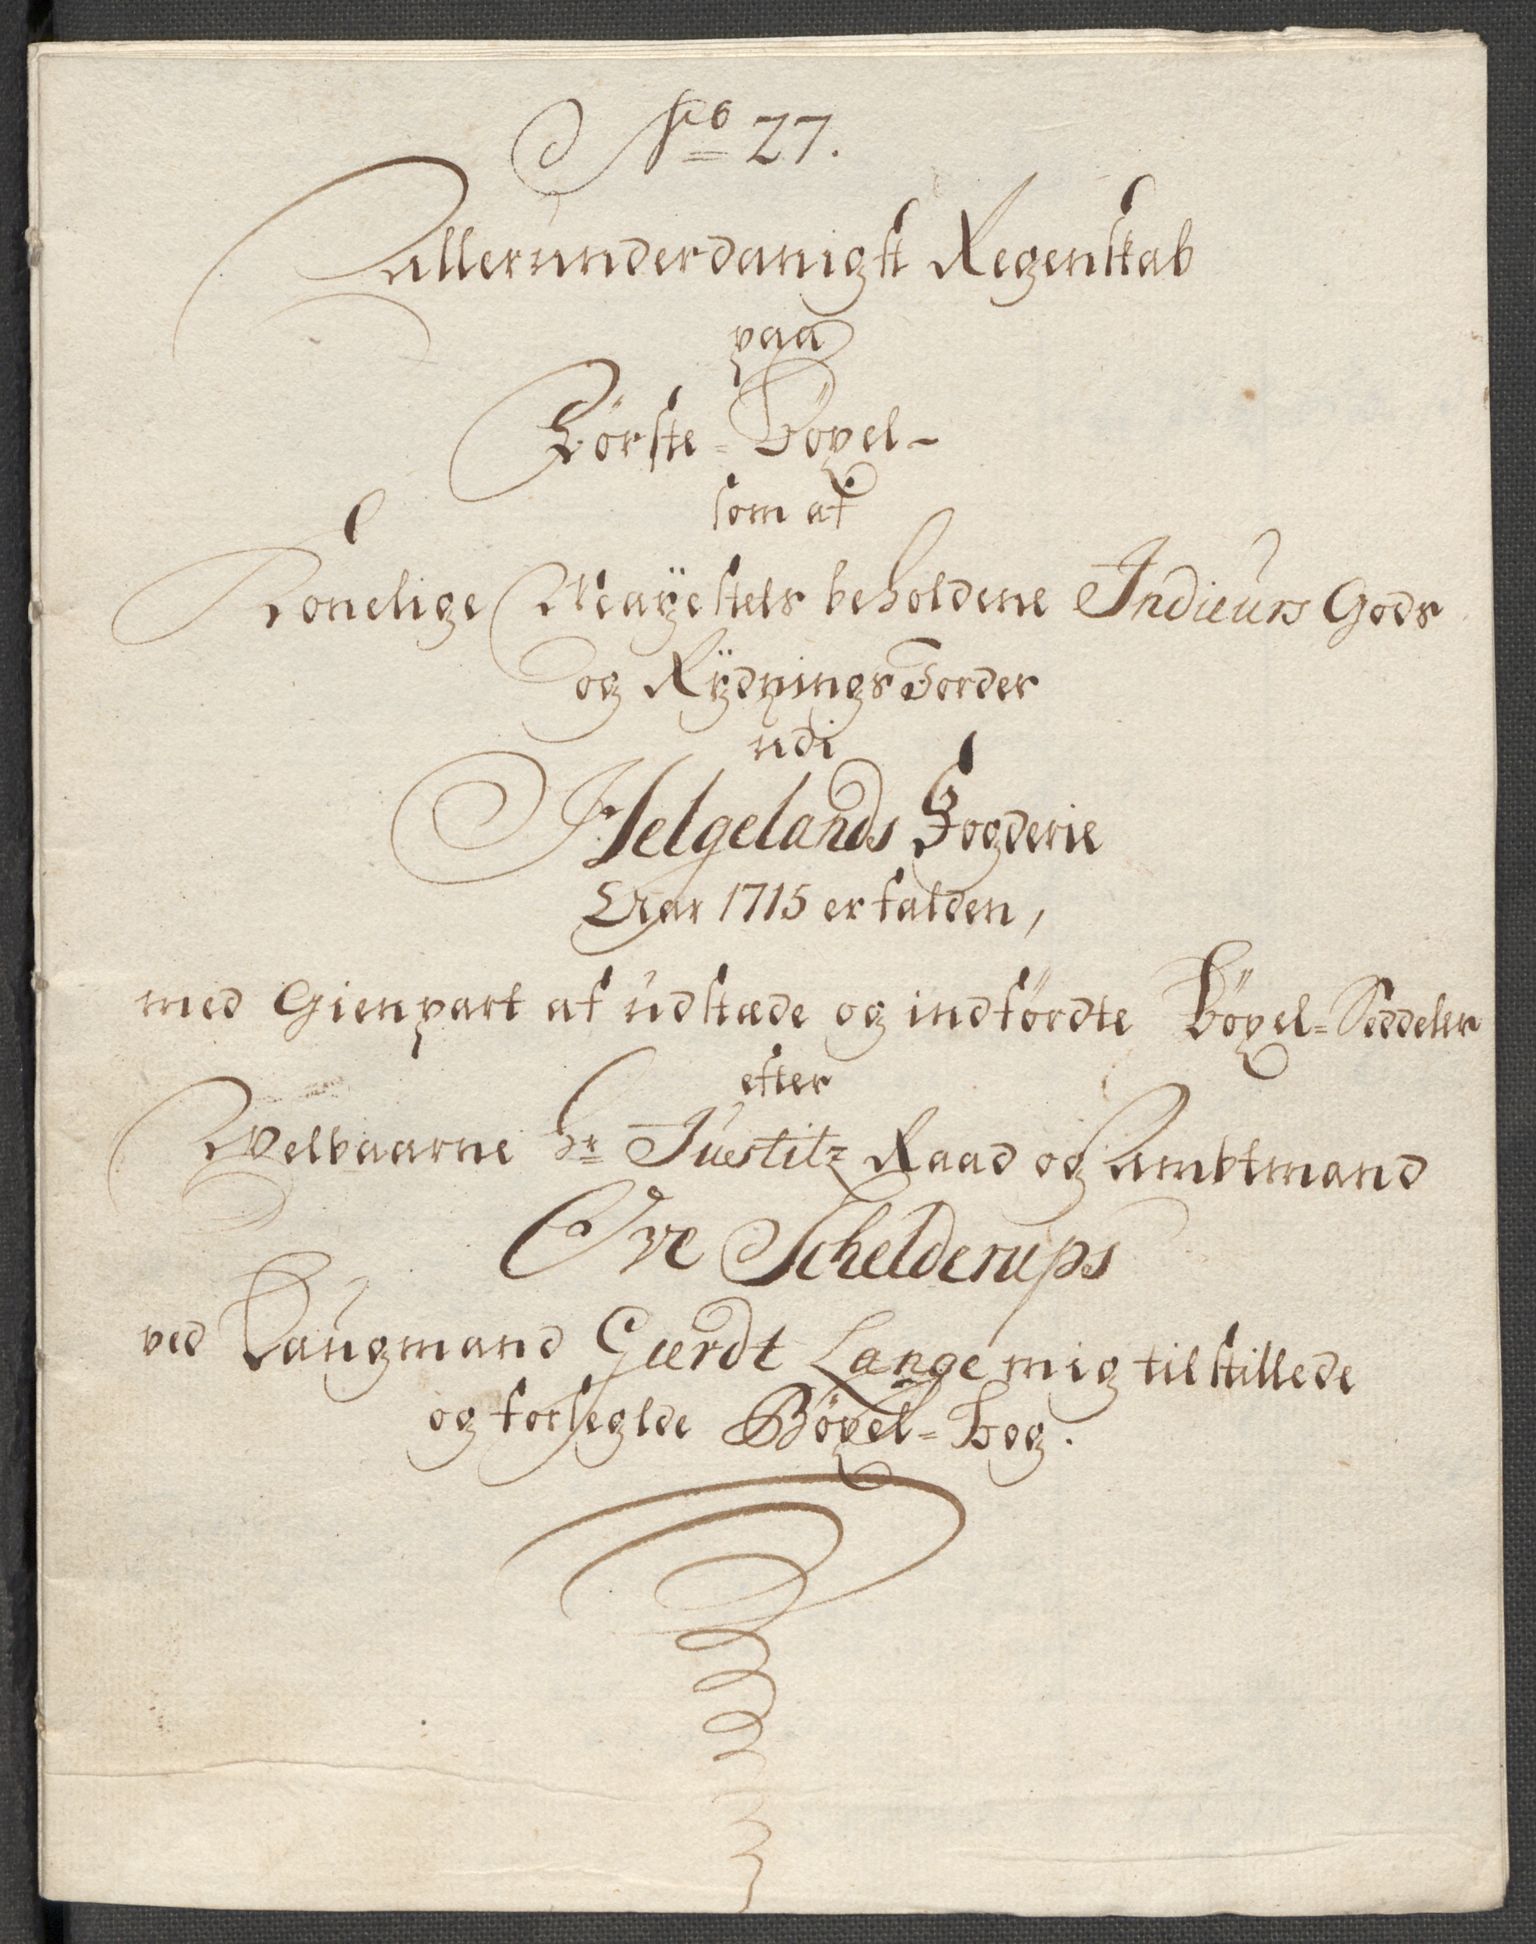 No 27.
Allerunderdanigst Regenskab
paa
Förste-Böxel-
som af
Konelige Mayestets beholdene Indieurs Gods
og Rydnings Jorder
udi
Helgelands Fogderie
Aar 1715 er falden,
med Gienpart af udstæde og indfördte Böxel-Seddeler
efter
Velbaarne Hr Juestitz Raad og Ambtmand
Ove Schelderups
ved Laugmand Gierdt Lange mig tilstillede
og forseglde Böxel-Bog.